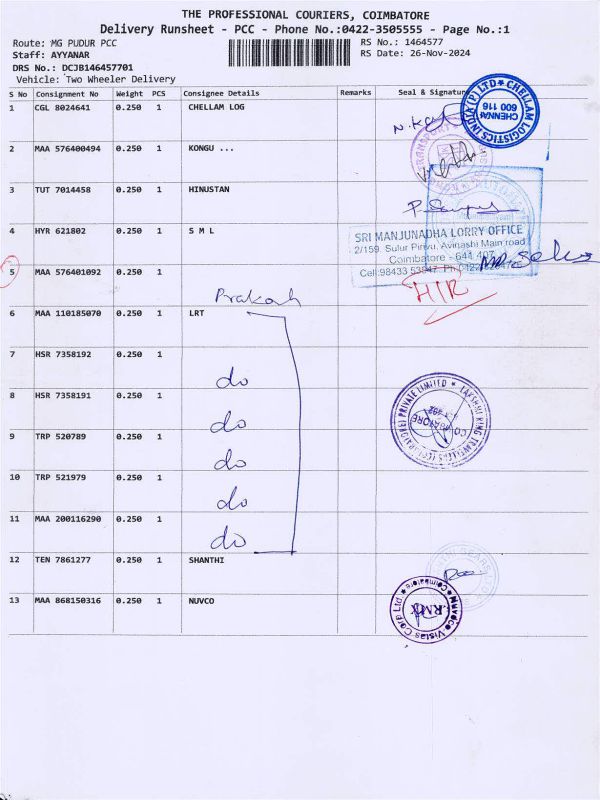 THE PROFESSIONAL COURIERS, COIMBATORE
Delivery Runsheet - PCC - Phone No.:0422-3505555 - Page No.:1
Route: MG PUDUR PCC
RS No.: 1464577
Staff: AYYANAR
RS Date: 26-Nov-2024
DRS No.: DCJB146457701
Vehicle: Two Wheeler Delivery
S No Consignment No Weight PCS Consignee Details Remarks Seal & Signature
1 CGL 8024641 0.250 1 CHELLAM LOG
CHELLAM LOGISTICS INDIA (P) LTD
CHENNAI
600 116
2 MAA 576400494 0.250 1 KONGU ...
3 TUT 7014458 0.250 1 HINUSTAN
4 HYR 621802 0.250 1 S M L
SRI MANJUNADHA LORRY OFFICE
2/159, Sulur Pirivu, Avinashi Main road
Coimbatore - 641 407
5 MAA 576401092 0.250 1
Prakash
HIR
6 MAA 110185070 0.250 1 LRT
7 HSR 7358192 0.250 1
do
8 HSR 7358191 0.250 1
do
9 TRP 520789 0.250 1
do
10 TRP 521979 0.250 1
do
11 MAA 200116290 0.250 1
do
LAKSHMI RING TRAVELLERS (COIMBATORE) PRIVATE LIMITED
COIMBATORE
12 TEN 7861277 0.250 1 SHANTHI
13 MAA 868150316 0.250 1 NUVCO
Nuvoco Vistas Corp Ltd.
Coimbatore
RMX